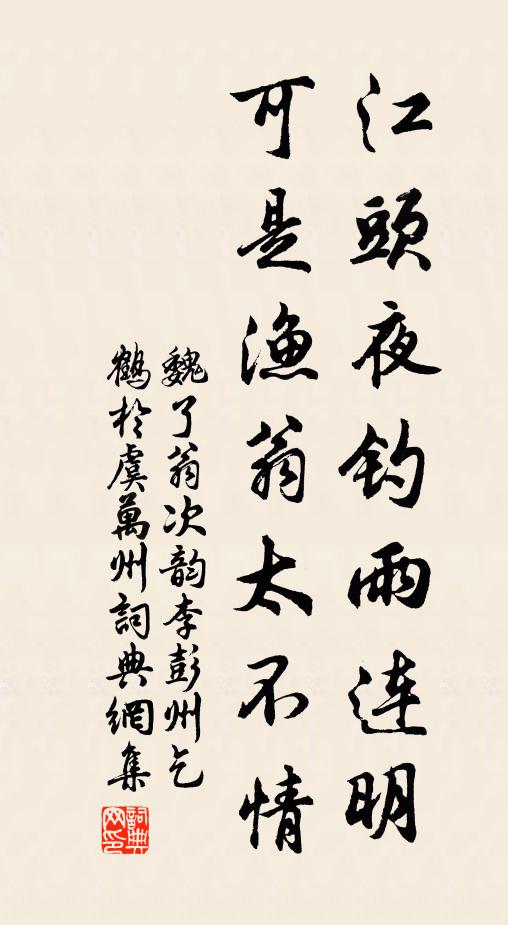 江頭夜釣雨連明
可是漁翁太不情
魏了翁次韵李彭州乞
鶴於虞萬州詞典網集
詞典网印